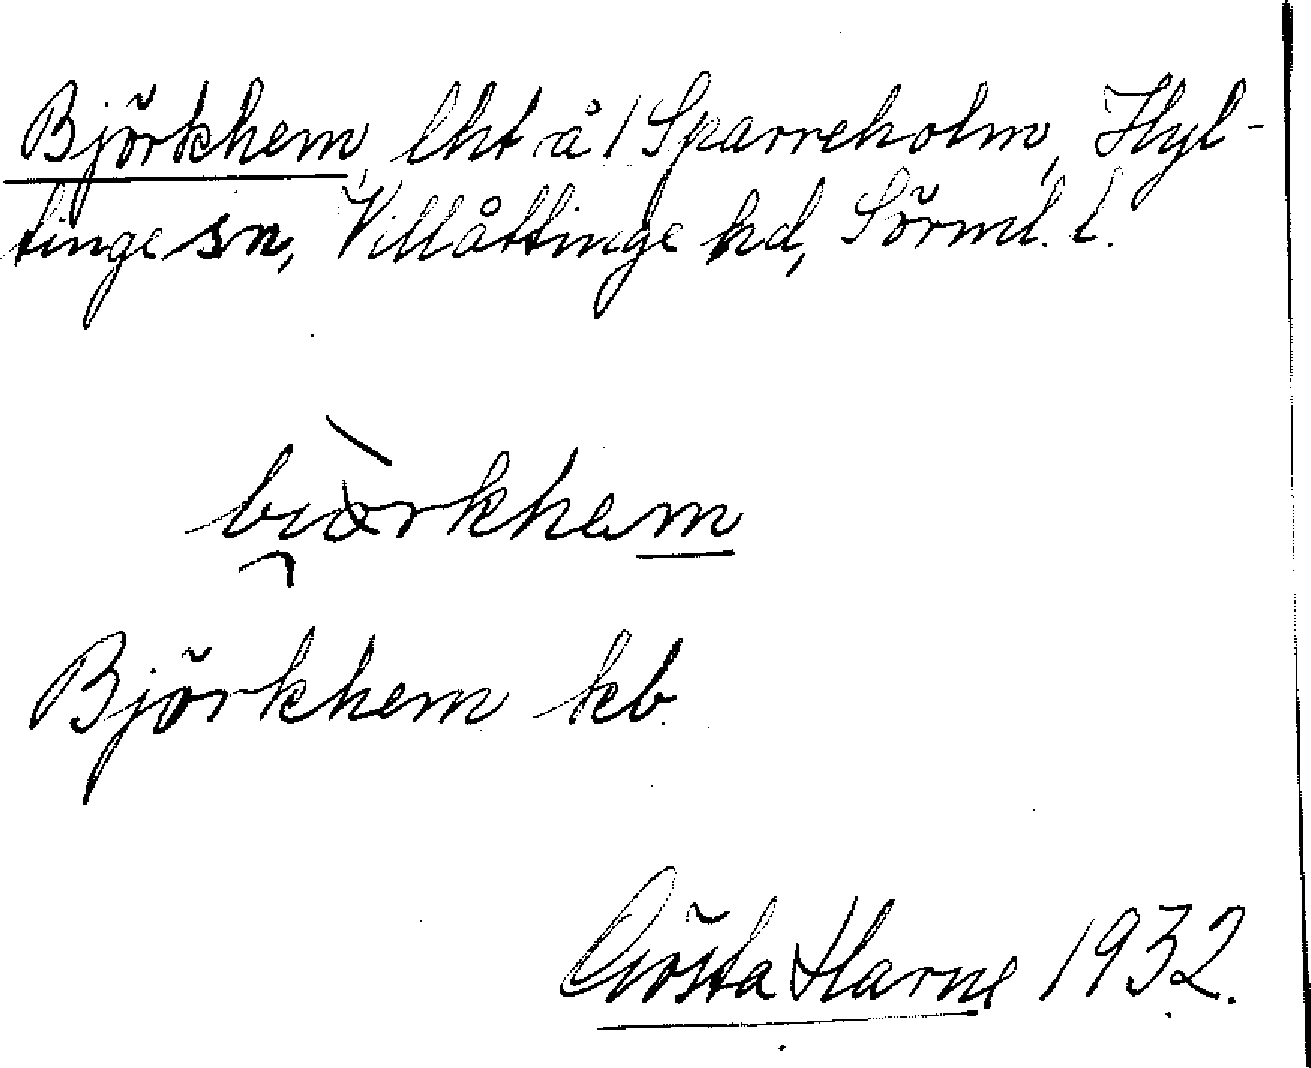 Björkhem, lht å 1 Sparreholm, Hyl-
tinge sn, Villåttinge hd, Sörml. l.
Björkhem kb
Gösta Harne 1932.